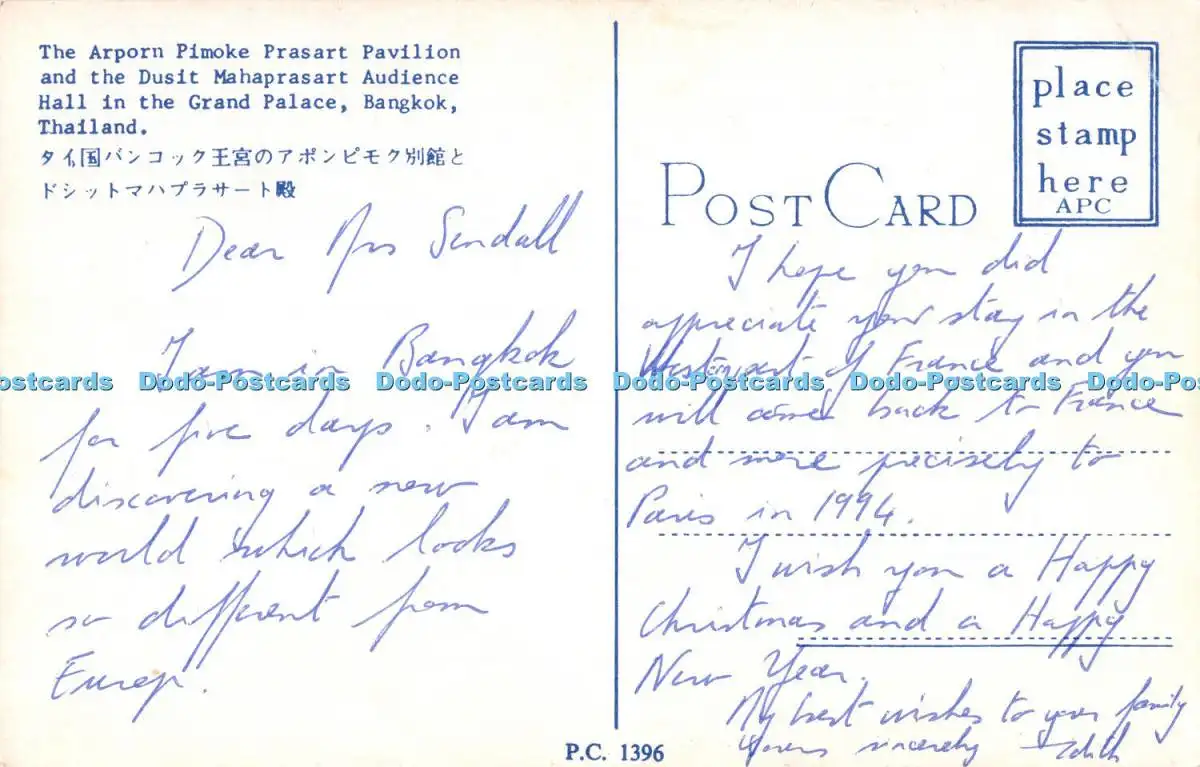 The Arporn Pimoke Prasart Pavilion
and the Dusit Mahaprasart Audience
Hall in the Grand Palace, Bangkok,
Thailand.
タイ国バンコック王宮のアポンピモク別館と
ドシットマハプラサート殿
Dear Mrs Sendall
I am in Bangkok
for five days. I am
discovering a new
world which looks
so different from
Europ.
place
stamp
here
APC
POST CARD
I hope you did
appreciate your stay in the
West part of France and you
will come back to France
and more precisely to
Paris in 1994.
I wish you a Happy
Christmas and a Happy
New Year.
My best wishes to your family
Yours sincerely Edith
P.C. 1396
ostcards Dodo-Postcards Dodo-Postcards Dodo-Postcards Dodo-Postcards Dodo-Pos